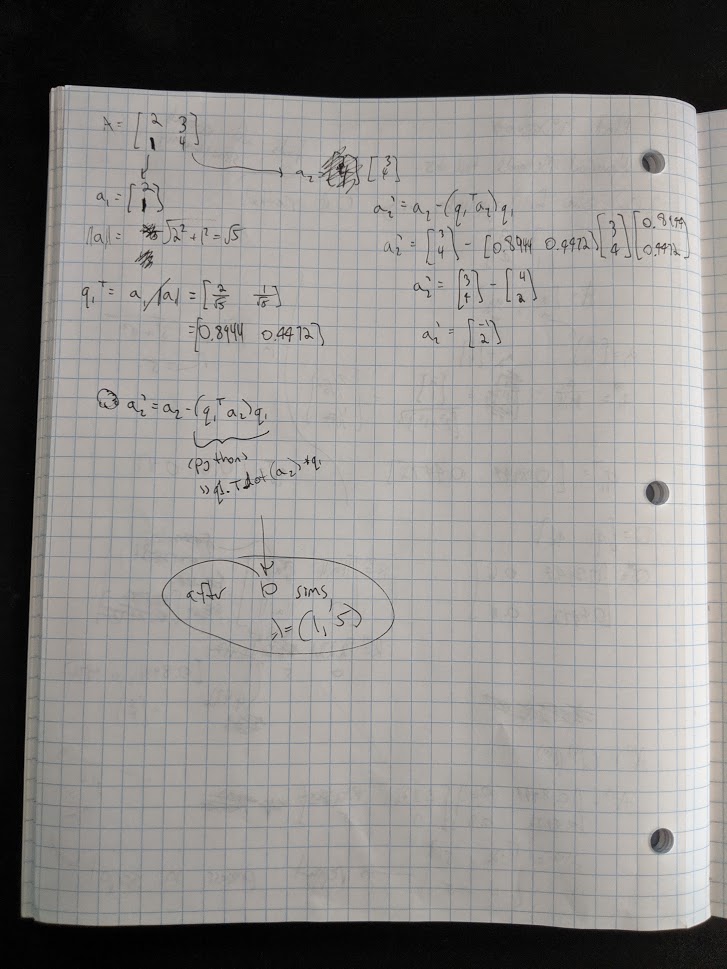 A = [2 3; 1 4]
a₁ = [2; 1]
||a|| = √2² + 1² = √5
q₁ᵀ = a₁/||a|| = [2/√5 1/√5]
= [0.8944 0.4472]
a₂ = [3; 4]
a₂' = a₂ - (q₁ᵀa₂)q₁
a₂' = [3; 4] - [0.8944 0.4472][3; 4][0.8944; 0.4472]
a₂' = [3; 4] - [4; 2]
a₂' = [-1; 2]
a₂' = a₂ - (q₁ᵀa₂)q₁
(python)
>> q1.T.dot(a₂)*q₁
after 10 sims
λ = (1, 5)